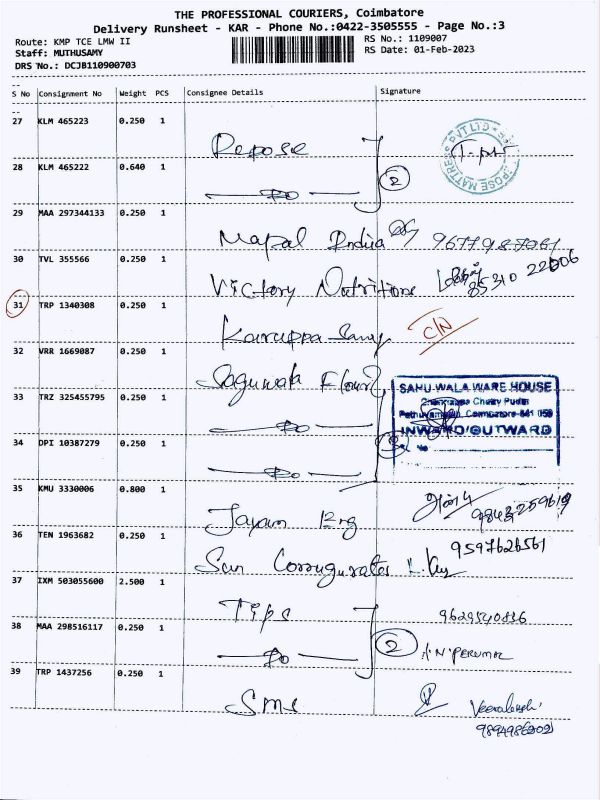 THE PROFESSIONAL COURIERS, Coimbatore
Delivery Runsheet - KAR - Phone No.:0422-3505555 - Page No.:3
Route: KMP TCE LMW II
RS No.: 1109007
Staff: MUTHUSAMY
RS Date: 01-Feb-2023
DRS No.: DCJB110900703
S No Consignment No Weight PCS Consignee Details Signature
27 KLM 465223 0.250 1 Repose
28 KLM 465222 0.640 1 Do 2
29 MAA 297344133 0.250 1 Mapal India
30 TVL 355566 0.250 1 Victory Nutritions 85310 22006
31 TRP 1340308 0.250 1 Karuppa Samy C/N
32 VRR 1669087 0.250 1
SAHU WALA WARE HOUSE
33 TRZ 325455795 0.250 1 Do
Coimbatore-641
INWARD/OUTWARD
34 DPI 10387279 0.250 1 Do
No
35 KMU 3330006 0.800 1 Jayam Eng
36 TEN 1963682 0.250 1 Sun 9597626561
37 IXM 503055600 2.500 1 Tips 9629540836
38 MAA 298516117 0.250 1 Do 2 N. PERUMAL
39 TRP 1437256 0.250 1 SMS